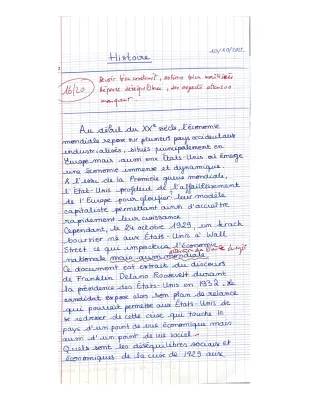 Histoire
16/20
Au début du XXe siècle, l'économie
mondiale repose sur plusieurs pays occidentaux
industrialisés, situés principalement en
Europe mais aussi aux États-Unis où émerge
une économie immense et dynamique.
A l'issue de la Première guerre mondiale,
l'État-Unis profitent de l'affaiblissement
de l'Europe pour glorifier leur modèle
capitaliste permettant ainsi d'accroître
rapidement leur puissance.
Cependant, le 24 octobre 1929, un krach
boursier naît aux États-Unis à Wall
Street ce qui impactera l'économie
nationale mais aussi mondiale.
Ce document est extrait du discours
de Franklin Delano Roosevelt durant
la présidence des États-Unis en 1932. Le
candidat expose alors son plan de relance
qui pourrait permettre aux États-Unis de
se redresser de cette crise qui touche le
pays d'un point de vue économique mais
aussi d'un point de vue social.
Quels sont les déséquilibres sociaux et
économiques de la crise de 1929 aux